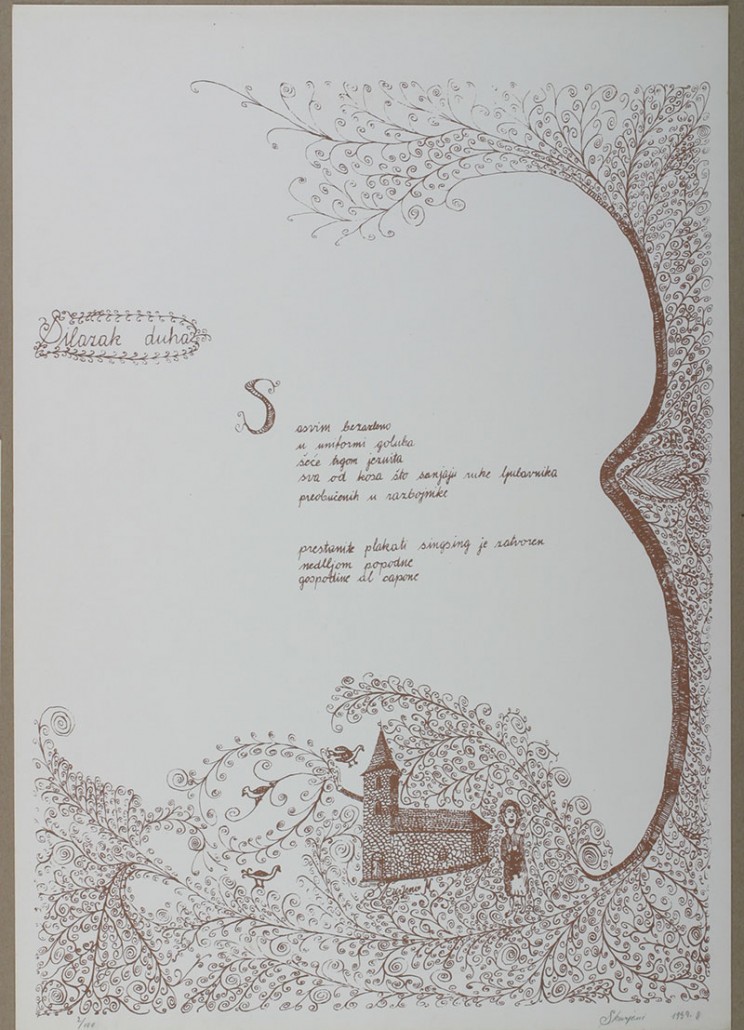 Silazak duha
Sasvim bezazleno
u uniformi goluba
šeće trgom jezuita
sva od kosa što sanjaju ruke ljubavnika
preobučenih u razbojnike
prestanite plakati singsing je zatvoren
nedjljom popodne
gospodine al capone
2/100